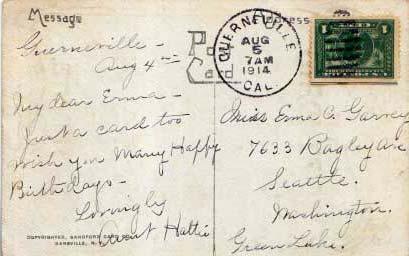 Message
Address
Post
Card
GUERNEVILLE
AUG
5
7AM
1914
CAL.
1
Guerneville -
Aug 4th
My dear Erma -
Just a card too
wish you Many Happy
Birthdays -
Lovingly
Aunt Hattie
COPYRIGHTED, SANDFORD CARD CO.
DANSVILLE, N.
Miss Erma C. Garvey
7633 Bagley Ave
Seattle.
Washington.
Green Lake.